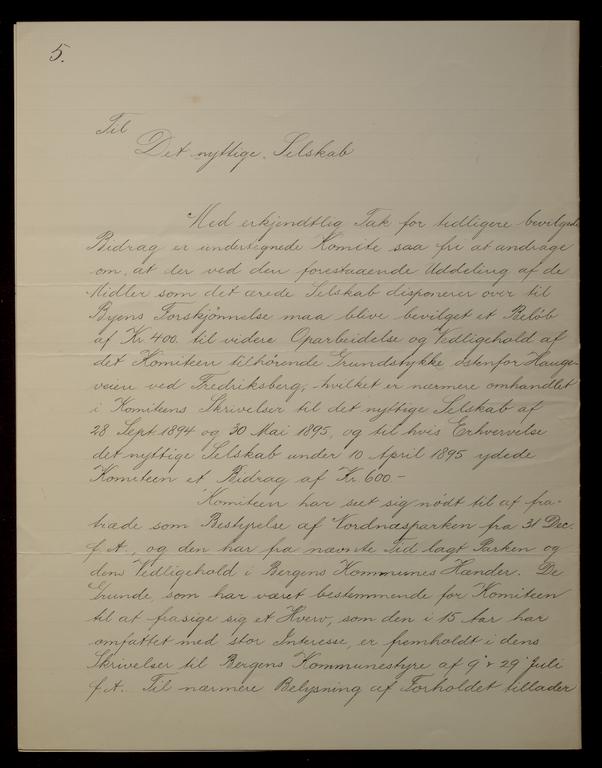 5.
Til
Det nyttige Selskab
Med erkjendtlig Tak for tidligere bevilgede
Bidrag er undertegnede Komite saa fri at andrage
om, at der ved den forestaaende Uddeling af de
Midler som det ærede Selskab disponerer over til
Byens Forskjønnelse maa blive bevilget et Beløb
af Kr. 400. til videre Oparbeidelse og Vedligehold af
det Komiteen tilhørende Grundstykke østenfor Hauge-
veien ved Fredriksberg, hvilket er nærmere omhandlet
i Komiteens Skrivelser til det nyttige Selskab af
28 Sept. 1894 og 30 Mai 1895, og til hvis Erhvervelse
det nyttige Selskab under 10 April 1895 ydede
Komiteen et Bidrag af Kr. 600.-
Komiteen har seet sig nødt til at fra-
træde som Bestyrelse af Nordnæsparken fra 31 Dec.
f. A., og den har fra nævnte Tid lagt Parken og
dens Vedligehold i Bergens Kommunes Hænder. De
Grunde, som har været bestemmende for Komiteen
til at frasige sig et Hverv, som den i 15 Aar har
omfattet med stor Interesse, er fremholdt i dens
Skrivelser til Bergens Kommunestyre af 9 & 29 Juli
f. A. Til nærmere Belysning af Forholdet tillader